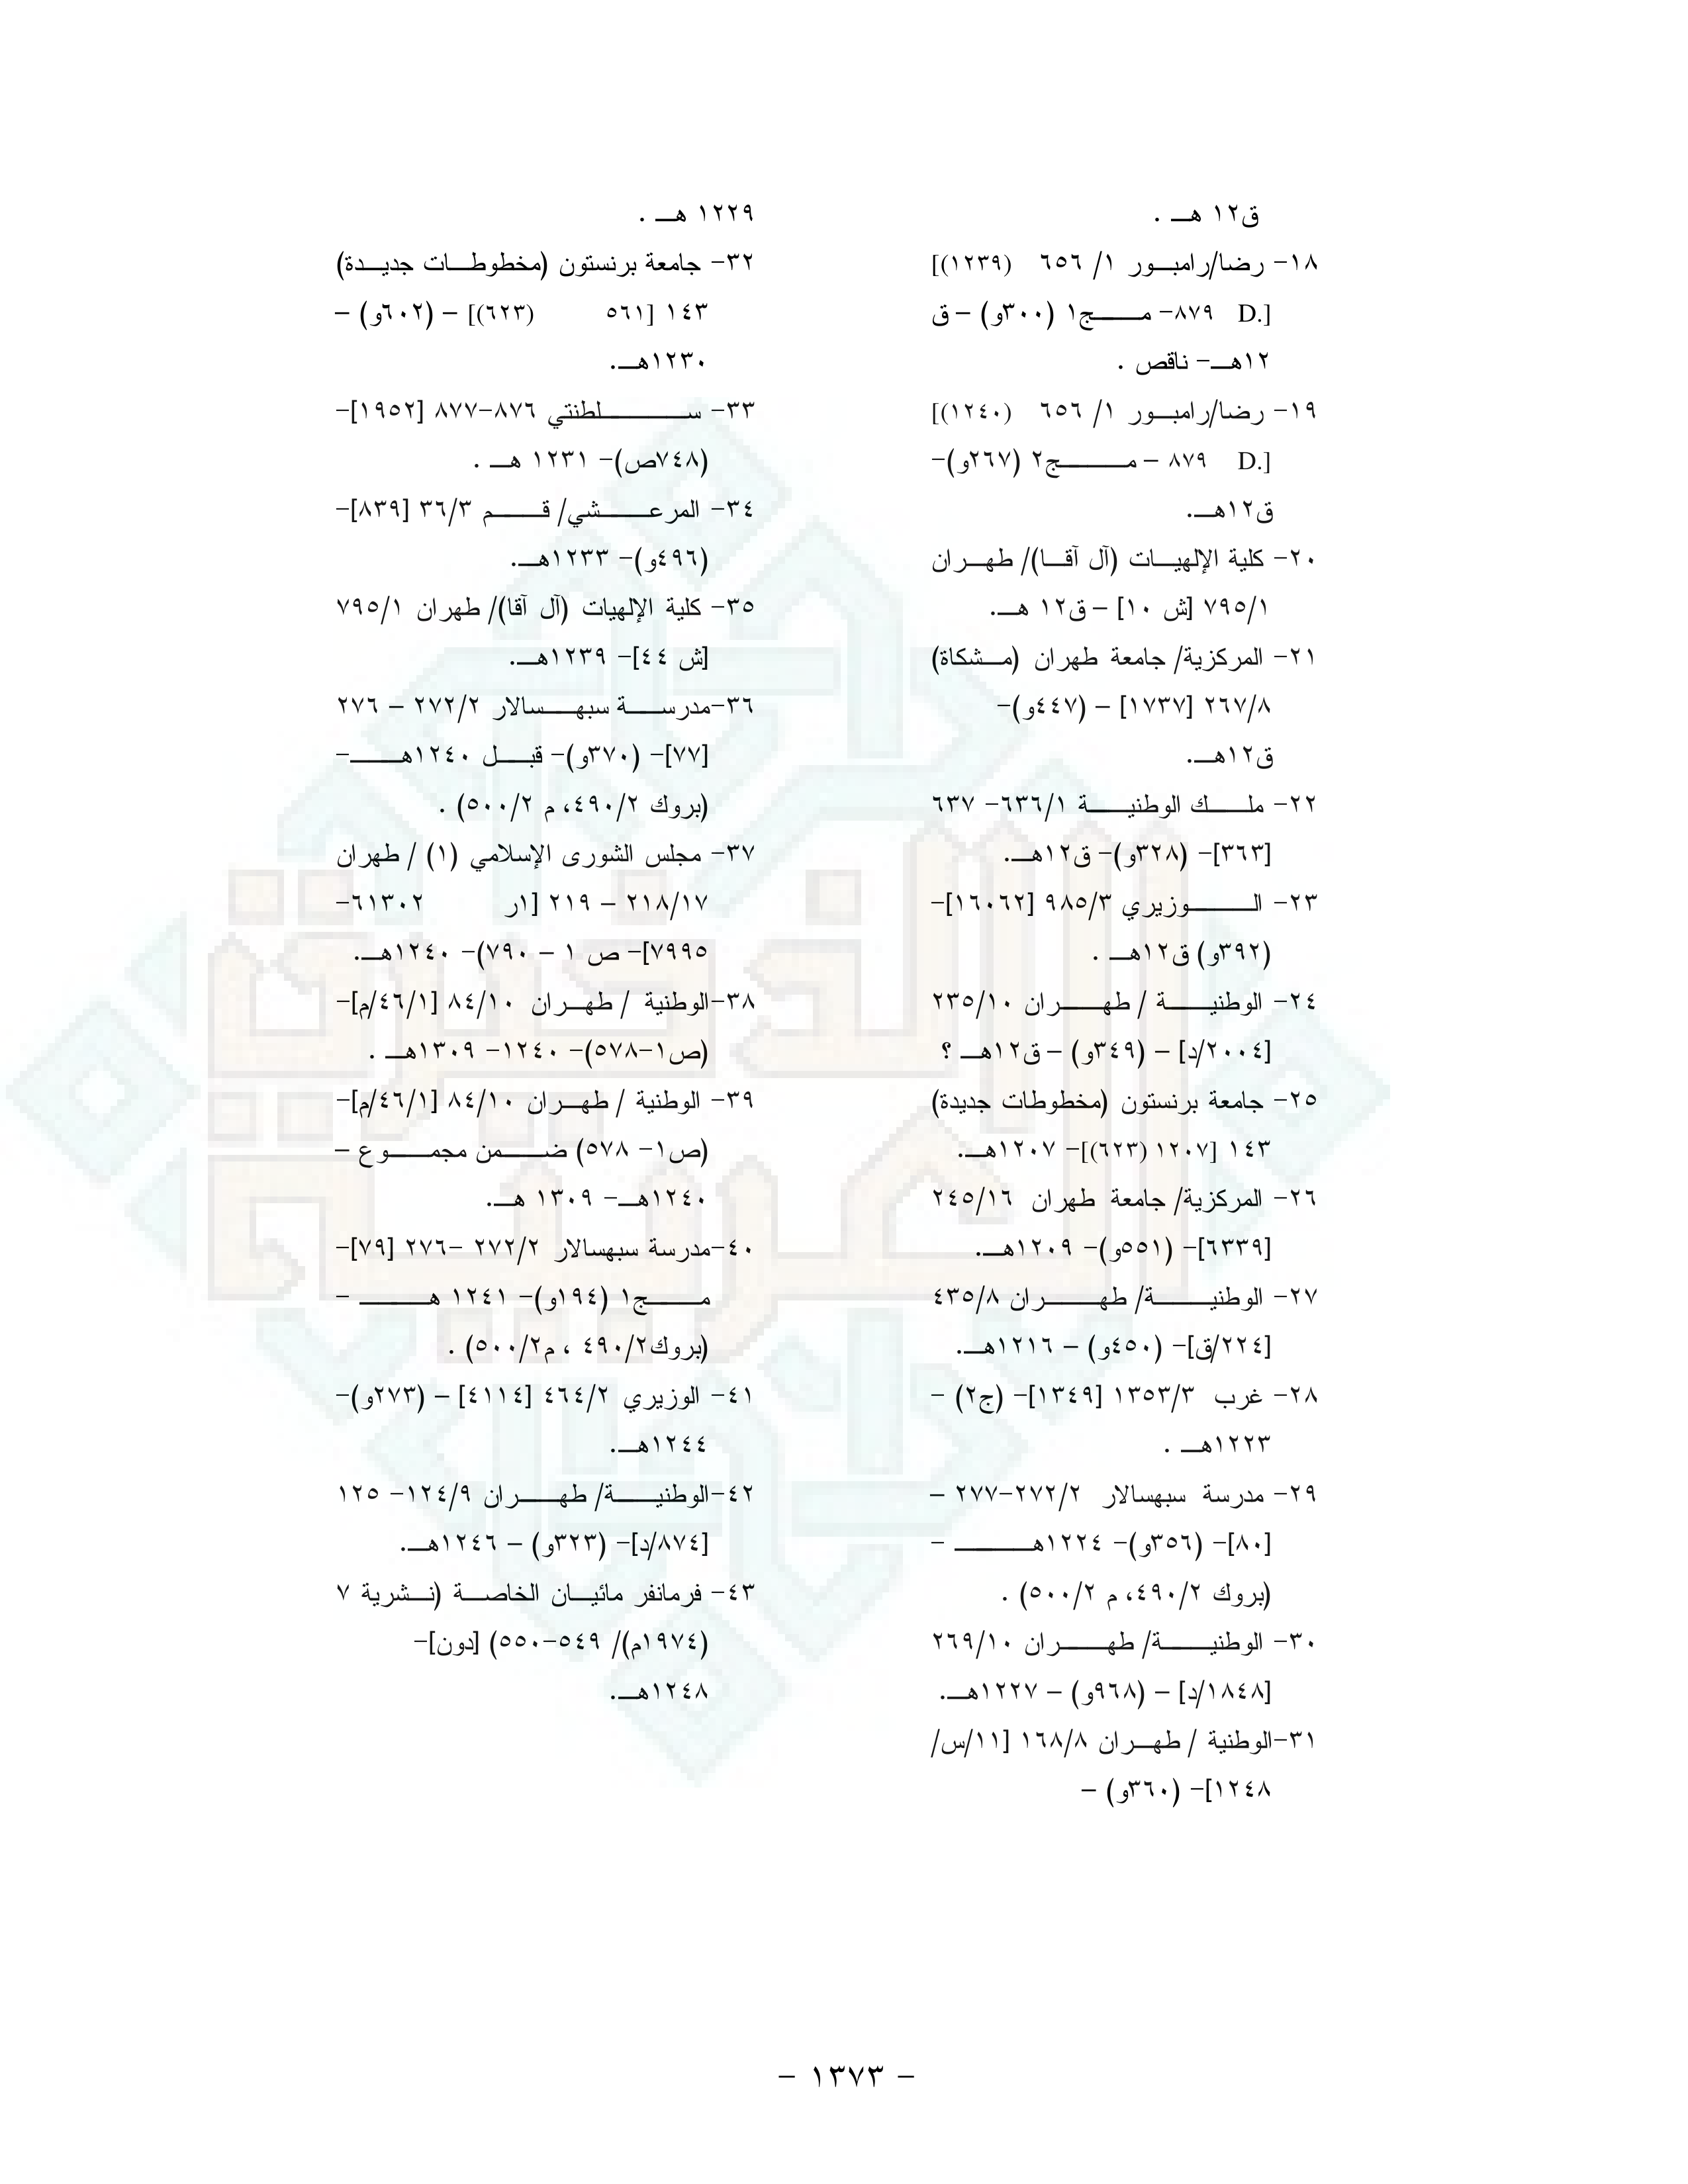 ق١٢ هـ .
١٨- رضا/رامبور ١/ ٦٥٦ (١٢٣٩)]
[.D ٨٧٩- مج١ (٣٠٠و) – ق
١٢هـ- ناقص .
١٩- رضا/رامبور ١/ ٦٥٦ (١٢٤٠)]
[.D ٨٧٩ – مج٢ (٢٦٧و)-
ق١٢هـ.
٢٠- كلية الإلهيات (آل آقا)/ طهران
٧٩٥/١ [ش ١٠] – ق١٢ هـ.
٢١- المركزية/ جامعة طهران (مشكاة)
٢٦٧/٨ [١٧٣٧] – (٤٤٧و)-
ق١٢هـ.
٢٢- ملك الوطنية ٦٣٦/١- ٦٣٧
[٣٦٣]- (٣٢٨و)- ق١٢هـ.
٢٣- الوزيري ٩٨٥/٣ [١٦٠٦٢]-
(٣٩٢و) ق١٢هـ .
٢٤- الوطنية / طهران ٢٣٥/١٠
[٢٠٠٤/د] – (٣٤٩و) – ق١٢هـ ؟
٢٥- جامعة برنستون (مخطوطات جديدة)
١٤٣ [١٢٠٧ (٦٢٣)]- ١٢٠٧هـ.
٢٦- المركزية/ جامعة طهران ٢٤٥/١٦
[٦٣٣٩]- (٥٥١و)- ١٢٠٩هـ.
٢٧- الوطنية/ طهران ٤٣٥/٨
[٢٢٤/ق]- (٤٥٠و) – ١٢١٦هـ.
٢٨- غرب ١٣٥٣/٣ [١٣٤٩]- (ج٢) -
١٢٢٣هـ .
٢٩- مدرسة سبهسالار ٢٧٢/٢-٢٧٧ –
[٨٠]- (٣٥٦و)- ١٢٢٤هـ -
(بروك ٤٩٠/٢، م ٥٠٠/٢) .
٣٠- الوطنية/ طهران ٢٦٩/١٠
[١٨٤٨/د] – (٩٦٨و) – ١٢٢٧هـ.
٣١-الوطنية / طهران ١٦٨/٨ [١١/س/
١٢٤٨]- (٣٦٠و) –
١٢٢٩ هـ .
٣٢- جامعة برنستون (مخطوطات جديدة)
١٤٣ [٥٦١ (٦٢٣)] – (٦٠٢و) –
١٢٣٠هـ.
٣٣- سلطنتي ٨٧٦-٨٧٧ [١٩٥٢]-
(٧٤٨ص)- ١٢٣١ هـ .
٣٤- المرعشي/ قم ٣٦/٣ [٨٣٩]-
(٤٩٦و)- ١٢٣٣هـ.
٣٥- كلية الإلهيات (آل آقا)/ طهران ٧٩٥/١
[ش ٤٤]- ١٢٣٩هـ.
٣٦-مدرسة سبهسالار ٢٧٢/٢ – ٢٧٦
[٧٧]- (٣٧٠و)- قبل ١٢٤٠هـ-
(بروك ٤٩٠/٢، م ٥٠٠/٢) .
٣٧- مجلس الشورى الإسلامي (١) / طهران
٢١٨/١٧ – ٢١٩ [١ر ٦١٣٠٢-
٧٩٩٥]- ص ١ – ٧٩٠)- ١٢٤٠هـ.
٣٨-الوطنية / طهران ٨٤/١٠ [٤٦/١/م]-
(ص١-٥٧٨)- ١٢٤٠- ١٣٠٩هـ .
٣٩- الوطنية / طهران ٨٤/١٠ [٤٦/١/م]-
(ص١- ٥٧٨) ضمن مجموع –
١٢٤٠هـ- ١٣٠٩ هـ.
٤٠-مدرسة سبهسالار ٢٧٢/٢ -٢٧٦ [٧٩]-
مج١ (١٩٤و)- ١٢٤١ هـ -
(بروك٤٩٠/٢ ، م٥٠٠/٢) .
٤١- الوزيري ٤٦٤/٢ [٤١١٤] – (٢٧٣و)-
١٢٤٤هـ.
٤٢-الوطنية/ طهران ١٢٤/٩- ١٢٥
[٨٧٤/د]- (٣٢٣و) – ١٢٤٦هـ.
٤٣- فرمانفر مائيان الخاصة (نشرية ٧
(١٩٧٤م)/ ٥٤٩-٥٥٠) [دون]-
١٢٤٨هـ.
- ١٣٧٣ -